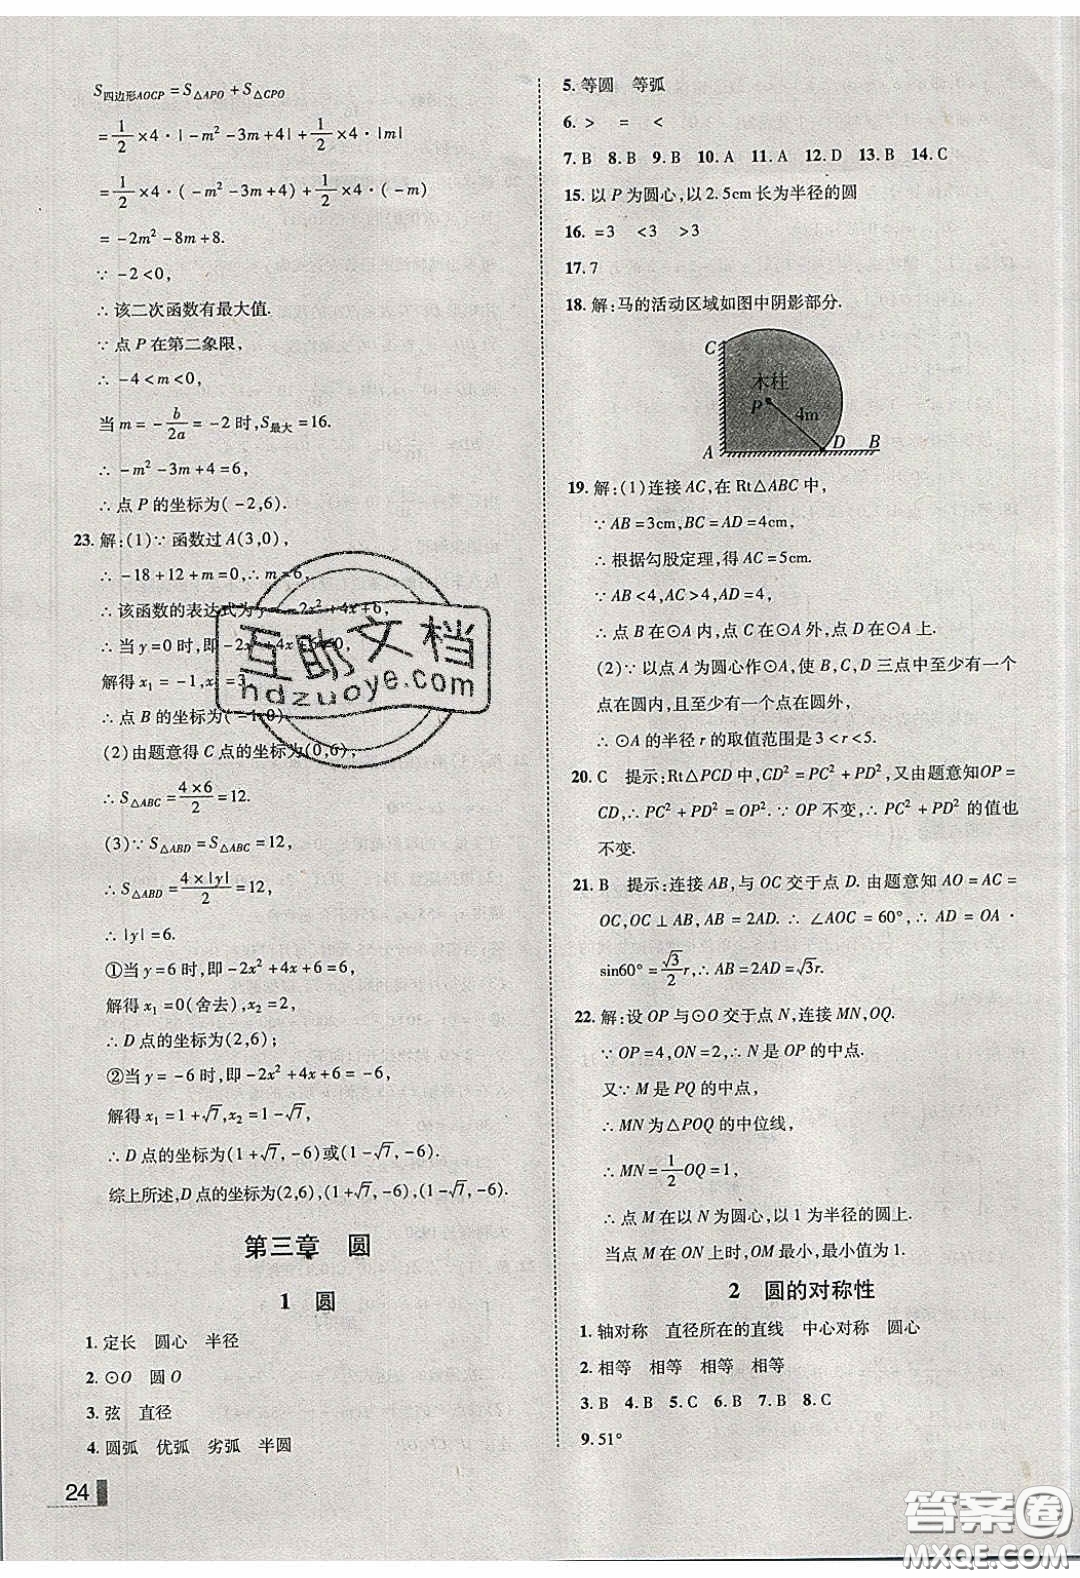 S四边形AOCP = S△APO + S△CPO
= 1/2 ×4·|-m²-3m+4| + 1/2 ×4·|m|
= 1/2 ×4·(-m²-3m+4) + 1/2 ×4·(-m)
= -2m²-8m+8.
∵ -2<0,
∴ 该二次函数有最大值.
∵ 点 P 在第二象限,
∴ -4<m<0,
当 m = -b/2a = -2 时, S最大 = 16.
∴ -m²-3m+4=6,
∴ 点 P 的坐标为(-2,6).
23. 解:(1)∵ 函数过 A(3,0),
∴ -18+12+m=0,∴ m=6,
∴ 该函数的表达式为 y=-2x²+4x+6,
∴ 当 y=0 时,即-2x²+4x+6=0,
解得 x₁=-1,x₂=3,
∴ 点 B 的坐标为(-1,0).
(2)由题意得 C 点的坐标为(0,6),
∴ S△ABC = 4×6/2 = 12.
(3)∵ S△ABD = S△ABC = 12,
∴ S△ABD = 4×|y|/2 = 12,
∴ |y|=6.
①当 y=6 时,即-2x²+4x+6=6,
解得 x₁=0(舍去),x₂=2,
∴ D 点的坐标为(2,6);
②当 y=-6 时,即-2x²+4x+6=-6,
解得 x₁=1+√7,x₂=1-√7,
∴ D 点的坐标为(1+√7,-6)或(1-√7,-6).
综上所述,D 点的坐标为(2,6),(1+√7,-6),(1-√7,-6).
第三章 圆
1 圆
1. 定长 圆心 半径
2. ⊙O 圆 O
3. 弦 直径
4. 圆弧 优弧 劣弧 半圆
24
5. 等圆 等弧
6. > = <
7. B 8. B 9. B 10. A 11. A 12. D 13. B 14. C
15. 以 P 为圆心,以 2.5cm 长为半径的圆
16. =3 <3 >3
17. 7
18. 解:马的活动区域如图中阴影部分.
C
木柱
P 4m
A D B
19. 解:(1)连接 AC,在 Rt△ABC 中,
∵ AB=3cm,BC=AD=4cm,
∴ 根据勾股定理,得 AC=5cm.
∵ AB<4,AC>4,AD=4,
∴ 点 B 在⊙A 内,点 C 在⊙A 外,点 D 在⊙A 上.
(2)∵ 以点 A 为圆心作⊙A,使 B,C,D 三点中至少有一个
点在圆内,且至少有一个点在圆外,
∴ ⊙A 的半径 r 的取值范围是 3<r<5.
20. C 提示:Rt△PCD 中,CD²=PC²+PD²,又由题意知OP=
CD,∴ PC²+PD²=OP². ∵ OP 不变,∴ PC²+PD² 的值也
不变.
21. B 提示:连接 AB,与 OC 交于点 D. 由题意知 AO=AC=
OC,OC⊥AB,AB=2AD. ∴ ∠AOC=60°,∴ AD=OA·
sin60°=√3/2 r,∴ AB=2AD=√3r.
22. 解:设 OP 与⊙O 交于点 N,连接 MN,OQ.
∵ OP=4,ON=2,∴ N 是 OP 的中点.
又∵ M 是 PQ 的中点,
∴ MN 为△POQ 的中位线,
∴ MN=1/2 OQ=1,
∴ 点 M 在以 N 为圆心,以 1 为半径的圆上.
当点 M 在 ON 上时,OM 最小,最小值为 1.
2 圆的对称性
1. 轴对称 直径所在的直线 中心对称 圆心
2. 相等 相等 相等 相等
3. B 4. B 5. C 6. B 7. B 8. C
9. 51°
互助文档
hdzuoye.com
答案圈
MXQE.COM